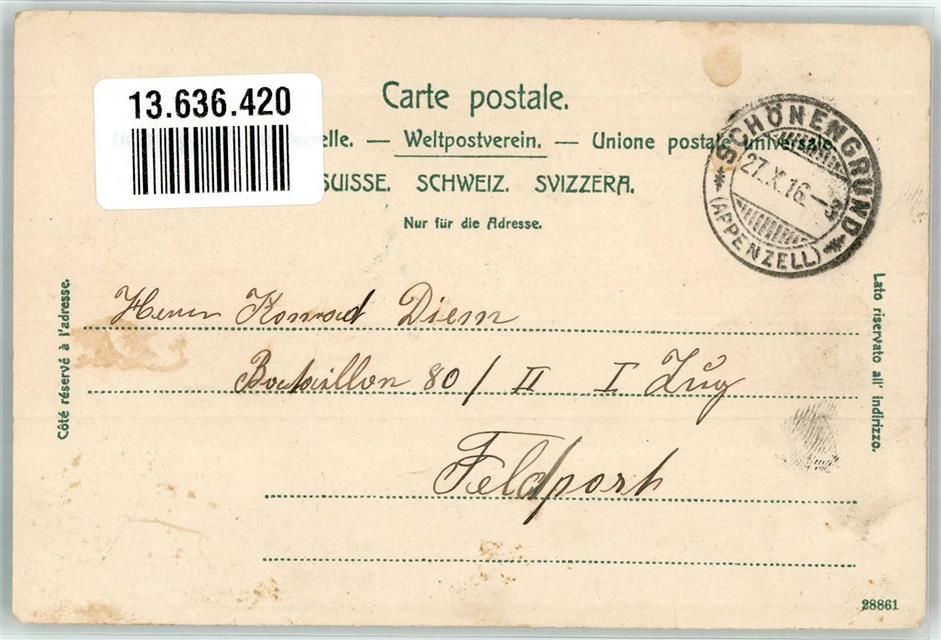 13.636.420
Carte postale.
elle. — Weltpostverein. — Unione postale universale.
SUISSE. SCHWEIZ. SVIZZERA.
Nur für die Adresse.
SCHÖNENGRUND
27.X.16.
(APPENZELL)
Côté réservé à l'adresse.
Lato riservato all' indirizzo.
Herrn Konrad Diem
Bataillon 80 / II I Zug
Feldpost
28861